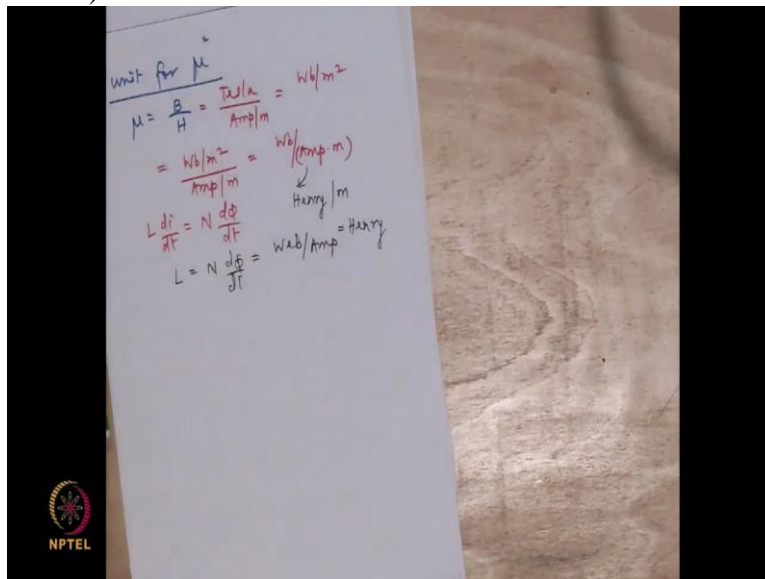 unit for μ
μ = B/H = Tesla/(Amp/m) = Wb/m²
= (Wb/m²)/(Amp/m) = Wb/(Amp·m)
Henry/m
L di/dt = N dΦ/dt
L = N dΦ/di = Web/Amp = Henry
NPTEL